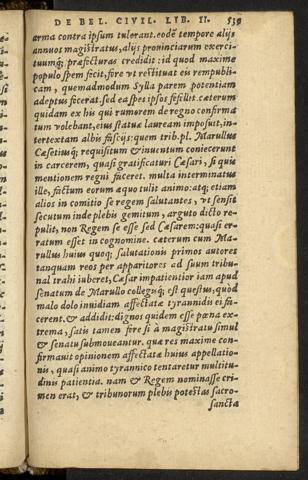 DE BEL. CIVIL. LIB. II. 539
arma contra ipsum tulerant. eodē tempore alijs
annuos magistratus, alijs prouinciarum exerci-
tuumq́; præfecturas credidit: id quod maxime
populo spem fecit, fore vt restituat eis rempubli-
cam, quemadmodum Sylla parem potentiam
adeptus fecerat. sed ea spes ipsos fefellit. cæterum
quidam ex his qui rumorem de regno confirma
tum volebant, eius statuæ lauream imposuit, in-
tertextam albis fascijs: quem trib. pl. Marullus
Cæsetiusq́; requisitum & inuentum coniecerunt
in carcerem, quasi gratificaturi Cæsari, si quis
mentionem regni fuceret. multa interminatus
ille, factum eorum æquo tulit animo: atq; etiam
alios in comitio se regem salutantes, vt sensit
secutum inde plebis gemitum, arguto dicto re-
pulit, non Regem se esse sed Cæsarem: quasi er-
ratum esset in cognomine. cæterum cum Ma-
rullus huius quoq; salutationis primos autores
tanquam reos per apparitores ad suum tribu-
nal trahi iuberet, Cæsar impatientior iam apud
senatum de Marullo collegaq́; est questus, quod
malo dolo inuidiam affectatæ tyrannidis ei fa-
cerent. & addidit: dignos quidem esse pœna ex-
trema, satis tamen fore si à magistratu simul
& senatu submoueantur. quæ res maxime con-
firmauit opinionem affectatæ huius appellatio-
nis, quasi animo tyrannico tentaretur multitu-
dinis patientia. nam & Regem nominasse cri-
men erat, & tribunorum plebis potestas sacro-
sancta